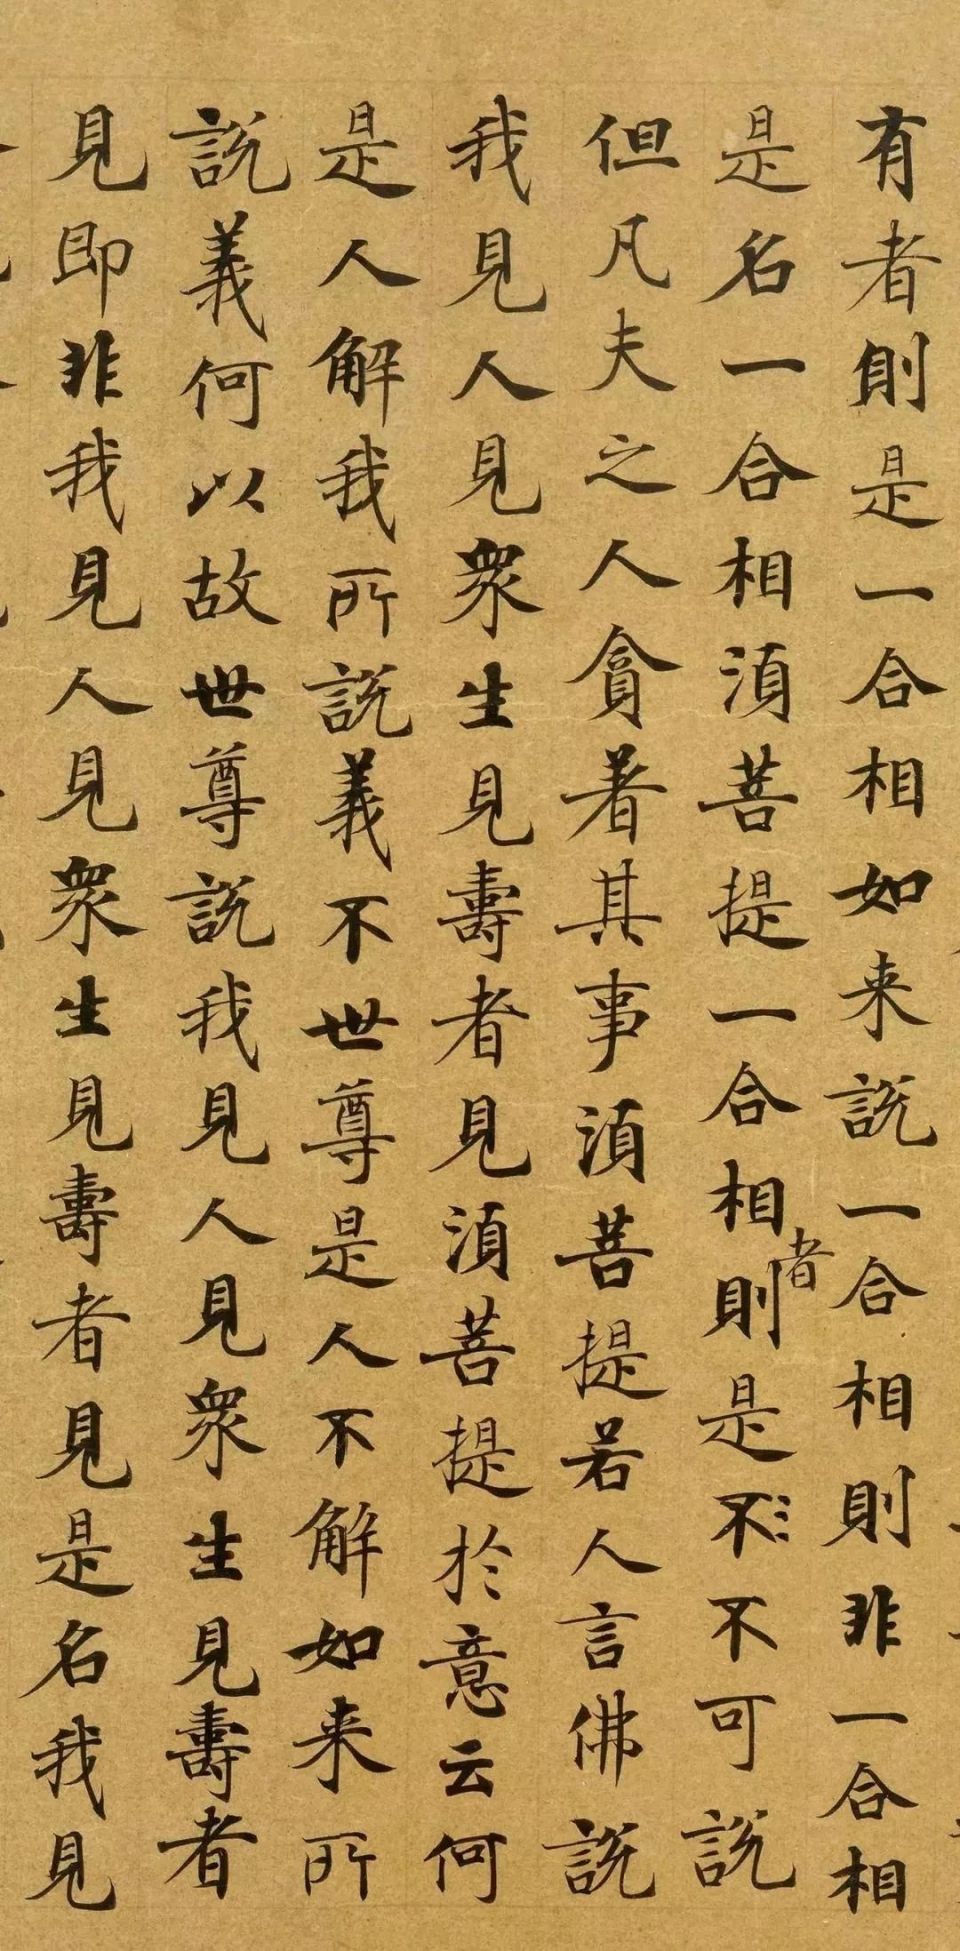 有者則是一合相如来說一合相則非一合相
是名一合相須菩提一合相者則是不不可說
但凡夫之人貪著其事須菩提若人言佛說
我見人見衆生見壽者見須菩提於意云何
是人解我所說義不世尊是人不解如来所
說義何以故世尊說我見人見衆生見壽者
見即非我見人見衆生見壽者見是名我見